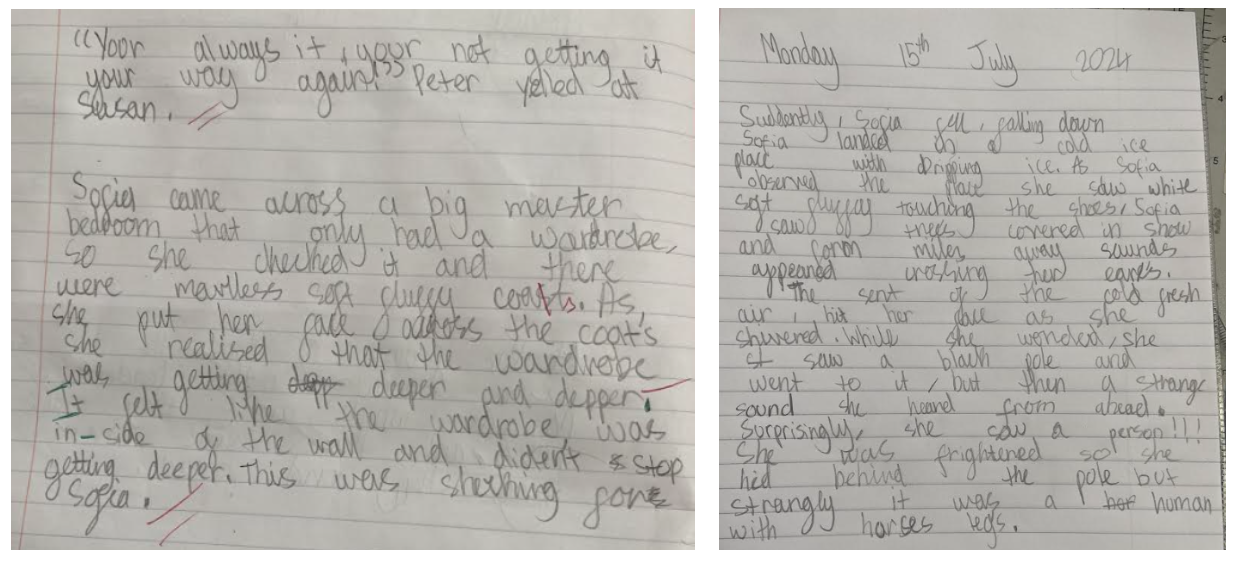 "Yoor always it, your not getting it
your way again!" Peter yelled at
Susan.
Sofia came across a big master
bedroom that only had a wardrobe,
so she checked it and there
were mantless soft fluffy coats. As,
she put her face across the coat's
she realised that the wardrobe
was getting deeper and depper.
It felt like the wardrobe, was
in-side of the wall and dident stop
getting deeper. This was shocking for
Sofia.
Monday 15th July 2024
Suddently, Sofia fell, falling down
Sofia landed in a cold ice
place with dripping ice. As Sofia
observed the place she saw white
soft fluffay touching the shoes, Sofia
saw trees covered in snow
and form miles away saunds
appeared croshing her eares.
The sent of the cold fresh
air, hit her face as she
shivered. While she wonded, she
saw a blach pole and
went to it, but then a strange
sound she heared from ahead.
Surprisingly, she saw a person!!!
She was frightened so she
hid behind the pole but
strangly it was a human
with horses legs.